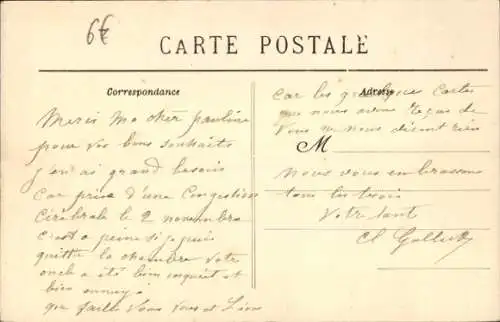 6€
CARTE POSTALE
Correspondance
Merci ma cher pauline
pour vos bons souhaits
j'en ai grand besoin
car prise d'une Congestion
Cérébrale le 2 novembre
c'est a peine si je puis
quitter la chambre votre
oncle a été bien inquiet et
bien ennuyé
que faites Vous Vous et Léon
Adresse
car les quelques Cartes
que nous avons reçus de
Vous ne nous disent rien
M
nous vous embrassons
tous les trois
Votre tante